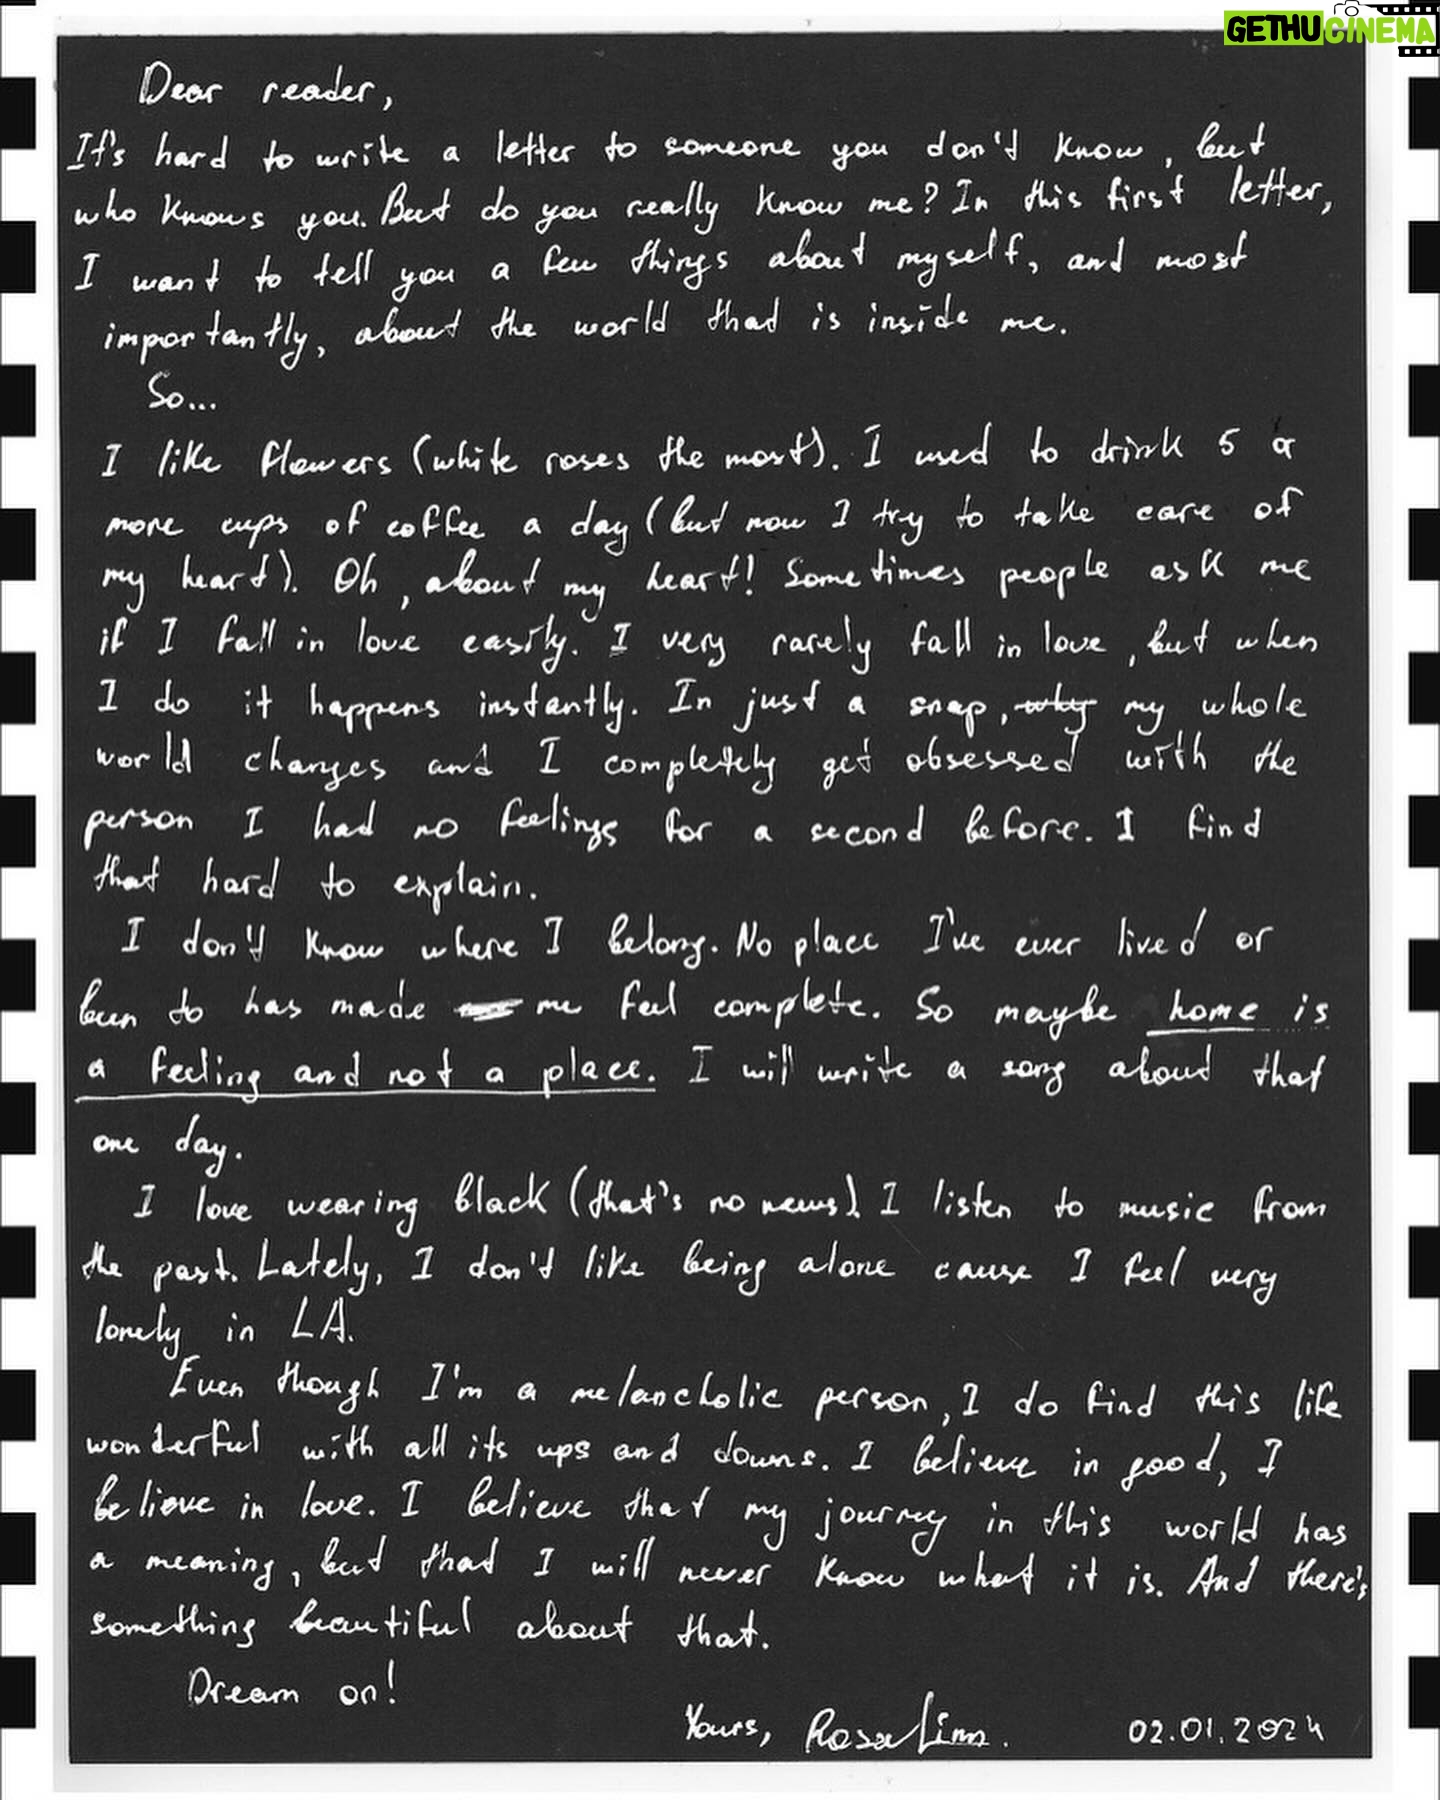 GETHUCINEMA
Dear reader,
It's hard to write a letter to someone you don't know, but
who knows you. But do you really know me? In this first letter,
I want to tell you a few things about myself, and most
importantly, about the world that is inside me.
So...
I like flowers (white roses the most). I used to drink 5 or
more cups of coffee a day (but now I try to take care of
my heart). Oh, about my heart! Sometimes people ask me
if I fall in love easily. I very rarely fall in love, but when
I do it happens instantly. In just a snap, why my whole
world changes and I completely get obsessed with the
person I had no feelings for a second before. I find
that hard to explain.
I don't know where I belong. No place I've ever lived or
been to has made me feel complete. So maybe home is
a feeling and not a place. I will write a song about that
one day.
I love wearing black (that's no news). I listen to music from
the past. Lately, I don't like being alone cause I feel very
lonely in LA.
Even though I'm a melancholic person, I do find this life
wonderful with all its ups and downs. I believe in good, I
believe in love. I believe that my journey in this world has
a meaning, but that I will never know what it is. And there's
something beautiful about that.
Dream on!
Yours, Rosa Linn. 02.01.2024